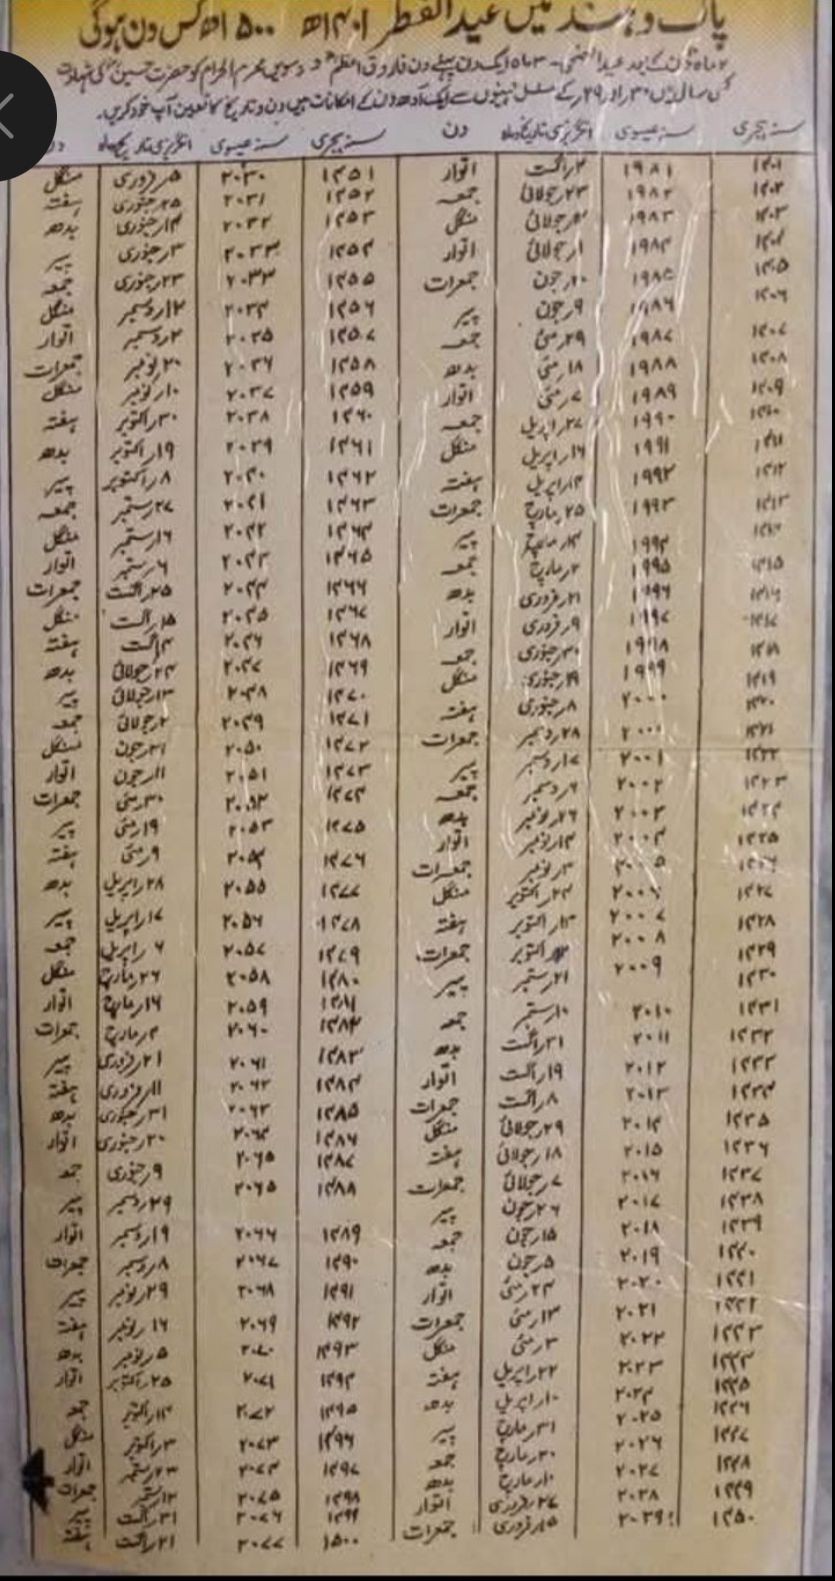 پاک و ہند میں عیدالفطر ۱۴۰۱ھ ۱۵۰۰ھ کس دن ہوگی
۲ماہ ۱۰دن کے بعد عیدالاضحیٰ۔ ۳ماہ ایک دن پہلے دن فاروق اعظمؓ و دسویں محرم الحرام کو حضرت حسینؓ کی شہادت
کسی سال میں ۳۰ اور ۲۹ کے مسلسل مہینوں سے ایک آدھ دن کے امکانات ہیں دن و تاریخ کا تعین آپ خود کریں۔
سنہ ہجری سنہ عیسوی انگریزی تاریخ و ماہ دن سنہ ہجری سنہ عیسوی انگریزی تاریخ و ماہ دن
۱۴۰۱ ۱۹۸۱ ۲؍اگست اتوار ۱۴۵۱ ۲۰۳۰ ۵؍فروری منگل
۱۴۰۲ ۱۹۸۲ ۲۳؍جولائی جمعہ ۱۴۵۲ ۲۰۳۱ ۲۵؍جنوری ہفتہ
۱۴۰۳ ۱۹۸۳ جولائی منگل ۱۴۵۳ ۲۰۳۲ ۱۴؍جنوری بدھ
۱۴۰۴ ۱۹۸۴ ۱؍جولائی اتوار ۱۴۵۴ ۲۰۳۳ ۳؍جنوری پیر
۱۴۰۵ ۱۹۸۵ ۲۰؍جون جمعرات ۱۴۵۵ ۲۰۳۳ ۲۳؍جنوری جمعہ
۱۴۰۶ ۱۹۸۶ ۹؍جون پیر ۱۴۵۶ ۲۰۳۴ ۱۲؍دسمبر منگل
۱۴۰۷ ۱۹۸۷ ۲۹؍مئی جمعہ ۱۴۵۷ ۲۰۳۵ ۲؍دسمبر اتوار
۱۴۰۸ ۱۹۸۸ ۱۸؍مئی بدھ ۱۴۵۸ ۲۰۳۶ ۲۰؍نومبر جمعرات
۱۴۰۹ ۱۹۸۹ ۷؍مئی اتوار ۱۴۵۹ ۲۰۳۷ ۱۰؍نومبر منگل
۱۴۱۰ ۱۹۹۰ ۲۷؍اپریل جمعہ ۱۴۶۰ ۲۰۳۸ ۳۰؍اکتوبر ہفتہ
۱۴۱۱ ۱۹۹۱ ۱۶؍اپریل منگل ۱۴۶۱ ۲۰۳۹ ۱۹؍اکتوبر بدھ
۱۴۱۲ ۱۹۹۲ ۴؍اپریل ہفتہ ۱۴۶۲ ۲۰۴۰ ۸؍اکتوبر پیر
۱۴۱۳ ۱۹۹۳ ۲۵؍مارچ جمعرات ۱۴۶۳ ۲۰۴۱ ۲۷؍ستمبر جمعہ
۱۴۱۴ ۱۹۹۴ ۱۴؍مارچ پیر ۱۴۶۴ ۲۰۴۲ ۱۶؍ستمبر منگل
۱۴۱۵ ۱۹۹۵ ۳؍مارچ جمعہ ۱۴۶۵ ۲۰۴۳ ۶؍ستمبر اتوار
۱۴۱۶ ۱۹۹۶ ۲۱؍فروری بدھ ۱۴۶۶ ۲۰۴۴ ۲۵؍اگست جمعرات
۱۴۱۷ ۱۹۹۷ ۹؍فروری اتوار ۱۴۶۷ ۲۰۴۵ ۱۵؍اگست منگل
۱۴۱۸ ۱۹۹۸ ۳۰؍جنوری جمعہ ۱۴۶۸ ۲۰۴۶ ۴؍اگست ہفتہ
۱۴۱۹ ۱۹۹۹ ۱۹؍جنوری منگل ۱۴۶۹ ۲۰۴۷ ۲۴؍جولائی بدھ
۱۴۲۰ ۲۰۰۰ ۸؍جنوری ہفتہ ۱۴۷۰ ۲۰۴۸ ۱۳؍جولائی پیر
۱۴۲۱ ۲۰۰۰ ۲۸؍دسمبر جمعرات ۱۴۷۱ ۲۰۴۹ ۲؍جولائی جمعہ
۱۴۲۲ ۲۰۰۱ ۱۷؍دسمبر پیر ۱۴۷۲ ۲۰۵۰ ۲۱؍جون منگل
۱۴۲۳ ۲۰۰۲ ۶؍دسمبر جمعہ ۱۴۷۳ ۲۰۵۱ ۱۱؍جون اتوار
۱۴۲۴ ۲۰۰۳ ۲۶؍نومبر بدھ ۱۴۷۴ ۲۰۵۲ ۳۰؍مئی جمعرات
۱۴۲۵ ۲۰۰۴ ۱۴؍نومبر اتوار ۱۴۷۵ ۲۰۵۳ ۱۹؍مئی پیر
۱۴۲۶ ۲۰۰۵ ۳؍نومبر جمعرات ۱۴۷۶ ۲۰۵۴ ۹؍مئی ہفتہ
۱۴۲۷ ۲۰۰۶ ۲۴؍اکتوبر منگل ۱۴۷۷ ۲۰۵۵ ۲۸؍اپریل بدھ
۱۴۲۸ ۲۰۰۷ ۱۳؍اکتوبر ہفتہ ۱۴۷۸ ۲۰۵۶ ۱۷؍اپریل پیر
۱۴۲۹ ۲۰۰۸ اکتوبر جمعرات ۱۴۷۹ ۲۰۵۷ ۶؍اپریل جمعہ
۱۴۳۰ ۲۰۰۹ ۲۱؍ستمبر پیر ۱۴۸۰ ۲۰۵۸ ۲۶؍مارچ منگل
۱۴۳۱ ۲۰۱۰ ۱۰؍ستمبر جمعہ ۱۴۸۱ ۲۰۵۹ ۱۶؍مارچ اتوار
۱۴۳۲ ۲۰۱۱ ۳۱؍اگست بدھ ۱۴۸۲ ۲۰۶۰ ۴؍مارچ جمعرات
۱۴۳۳ ۲۰۱۲ ۱۹؍اگست اتوار ۱۴۸۳ ۲۰۶۱ ۲۱؍فروری پیر
۱۴۳۴ ۲۰۱۳ ۸؍اگست جمعرات ۱۴۸۴ ۲۰۶۲ ۱۱؍فروری ہفتہ
۱۴۳۵ ۲۰۱۴ ۲۹؍جولائی منگل ۱۴۸۵ ۲۰۶۳ ۳۱؍جنوری بدھ
۱۴۳۶ ۲۰۱۵ ۱۸؍جولائی ہفتہ ۱۴۸۶ ۲۰۶۴ ۲۰؍جنوری اتوار
۱۴۳۷ ۲۰۱۶ ۷؍جولائی جمعرات ۱۴۸۷ ۲۰۶۵ ۹؍جنوری جمعہ
۱۴۳۸ ۲۰۱۷ ۲۶؍جون پیر ۱۴۸۸ ۲۰۶۵ ۲۹؍دسمبر پیر
۱۴۳۹ ۲۰۱۸ ۱۵؍جون جمعہ ۱۴۸۹ ۲۰۶۶ ۱۹؍دسمبر اتوار
۱۴۴۰ ۲۰۱۹ ۵؍جون بدھ ۱۴۹۰ ۲۰۶۷ ۸؍دسمبر جمعرات
۱۴۴۱ ۲۰۲۰ ۲۴؍مئی اتوار ۱۴۹۱ ۲۰۶۸ ۲۹؍نومبر پیر
۱۴۴۲ ۲۰۲۱ ۱۳؍مئی جمعرات ۱۴۹۲ ۲۰۶۹ ۱۶؍نومبر ہفتہ
۱۴۴۳ ۲۰۲۲ ۳؍مئی منگل ۱۴۹۳ ۲۰۷۰ ۵؍نومبر بدھ
۱۴۴۴ ۲۰۲۳ ۲۲؍اپریل ہفتہ ۱۴۹۴ ۲۰۷۱ ۲۵؍اکتوبر اتوار
۱۴۴۵ ۲۰۲۴ ۱۰؍اپریل بدھ ۱۴۹۵ ۲۰۷۲ ۱۴؍اکتوبر جمعہ
۱۴۴۶ ۲۰۲۵ ۳۱؍مارچ پیر ۱۴۹۶ ۲۰۷۳ ۳؍اکتوبر منگل
۱۴۴۷ ۲۰۲۶ ۲۰؍مارچ جمعہ ۱۴۹۷ ۲۰۷۴ ۲۳؍ستمبر اتوار
۱۴۴۸ ۲۰۲۷ ۱۰؍مارچ بدھ ۱۴۹۸ ۲۰۷۵ ۱۲؍ستمبر جمعرات
۱۴۴۹ ۲۰۲۸ ۲۷؍فروری اتوار ۱۴۹۹ ۲۰۷۶ ۳۱؍اگست پیر
۱۴۵۰ ۲۰۲۹ ۱۵؍فروری جمعرات ۱۵۰۰ ۲۰۷۷ ۲۱؍اگست ہفتہ